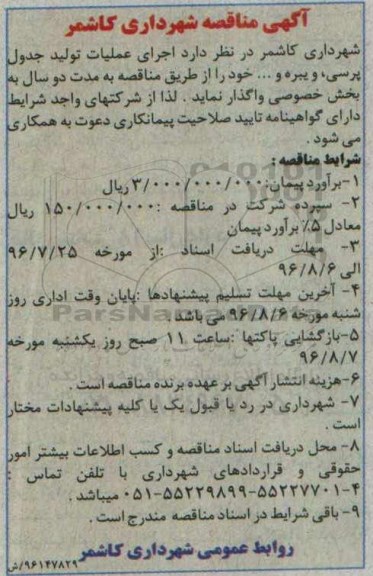 آگهی مناقصه شهرداری کاشمر
شهرداری کاشمر در نظر دارد اجرای عملیات تولید جدول
پرسی، ویبره و ... خود را از طریق مناقصه به مدت دو سال به
بخش خصوصی واگذار نماید . لذا از شرکتهای واجد شرایط
دارای گواهینامه تایید صلاحیت پیمانکاری دعوت به همکاری
می شود .
شرایط مناقصه :
۱-برآورد پیمان: ۳/۰۰۰/۰۰۰/۰۰۰ ریال
۲- سپرده شرکت در مناقصه :۱۵۰/۰۰۰/۰۰۰ ریال
معادل ۵٪ برآورد پیمان
۳- مهلت دریافت اسناد :از مورخه ۹۶/۷/۲۵
الی ۹۶/۸/۶
۴- آخرین مهلت تسلیم پیشنهادها :پایان وقت اداری روز
شنبه مورخه ۹۶/۸/۶ می باشد
۵-بازگشایی پاکتها :ساعت ۱۱ صبح روز یکشنبه مورخه
۹۶/۸/۷
۶-هزینه انتشار آگهی بر عهده برنده مناقصه است .
۷- شهرداری در رد یا قبول یک یا کلیه پیشنهادات مختار
است .
۸- محل دریافت اسناد مناقصه و کسب اطلاعات بیشتر امور
حقوقی و قراردادهای شهرداری با تلفن تماس :
۴-۵۵۲۲۷۷۰۱-۵۵۲۲۹۸۹۹-۰۵۱ میباشد .
۹- باقی شرایط در اسناد مناقصه مندرج است .
روابط عمومی شهرداری کاشمر
۹۶۱۴۷۸۲۹/ش